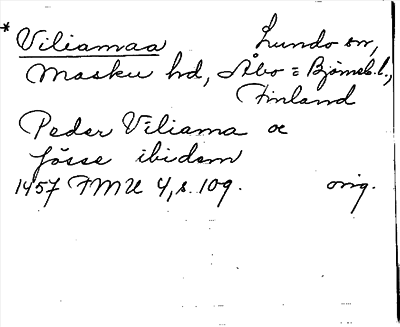 * Viliamaa Lundo sn,
Masku hd, Åbo = Björneb. l.,
Finland
Peder Viliama oc
Jösse ibidem
1457 FMU 4, s. 109. orig.